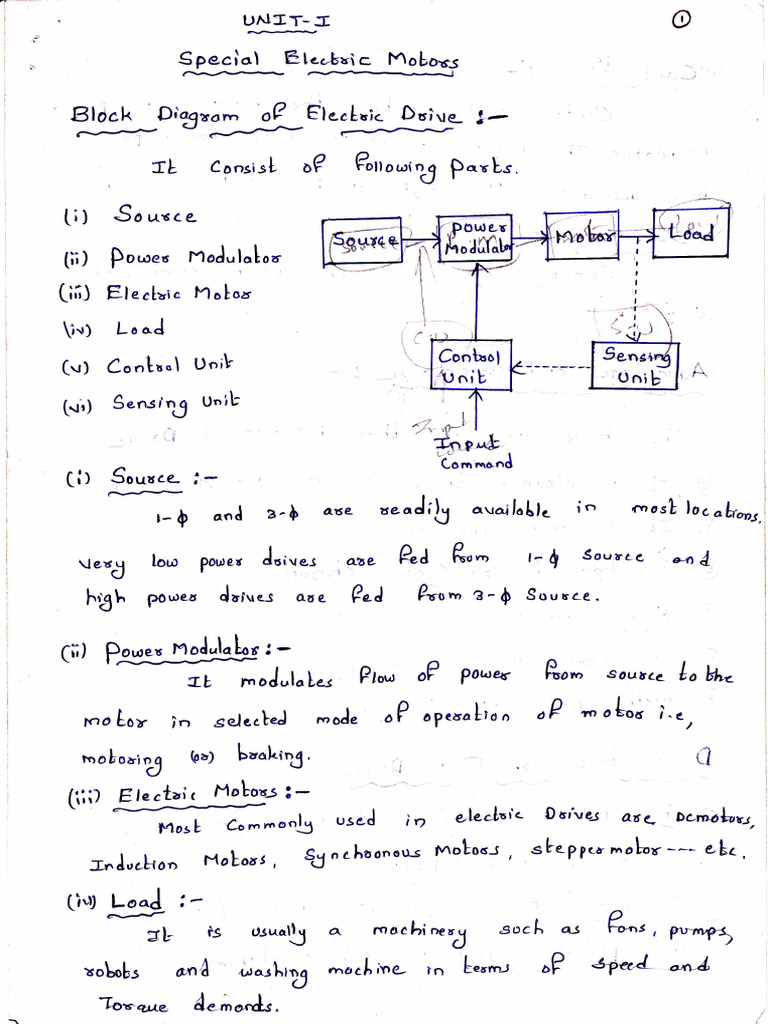 UNIT-I
1
Special Electric Motors
Block Diagram of Electric Drive :-
It Consist of following Parts.
(i) Source
(ii) Power Modulator
(iii) Electric Motor
(iv) Load
(v) Control Unit
(vi) Sensing Unit
Source
Power
Modulator
Motor
Load
Control
Unit
Sensing
Unit
Input
Input
Command
(i) Source :-
1-ϕ and 3-ϕ are readily available in most locations.
Very low power drives are fed from 1-ϕ Source and
high power drives are fed from 3-ϕ Source.
(ii) Power Modulator :-
It modulates flow of power from source to the
motor in selected mode of operation of motor i.e,
motoring (or) braking.
(iii) Electric Motors :-
Most Commonly used in electric Drives are Dcmotors,
Induction Motors, Synchronous Motors, stepper motor --- etc.
(iv) Load :-
It is usually a machinery such as fans, pumps,
robots and washing machine in terms of speed and
Torque demands.